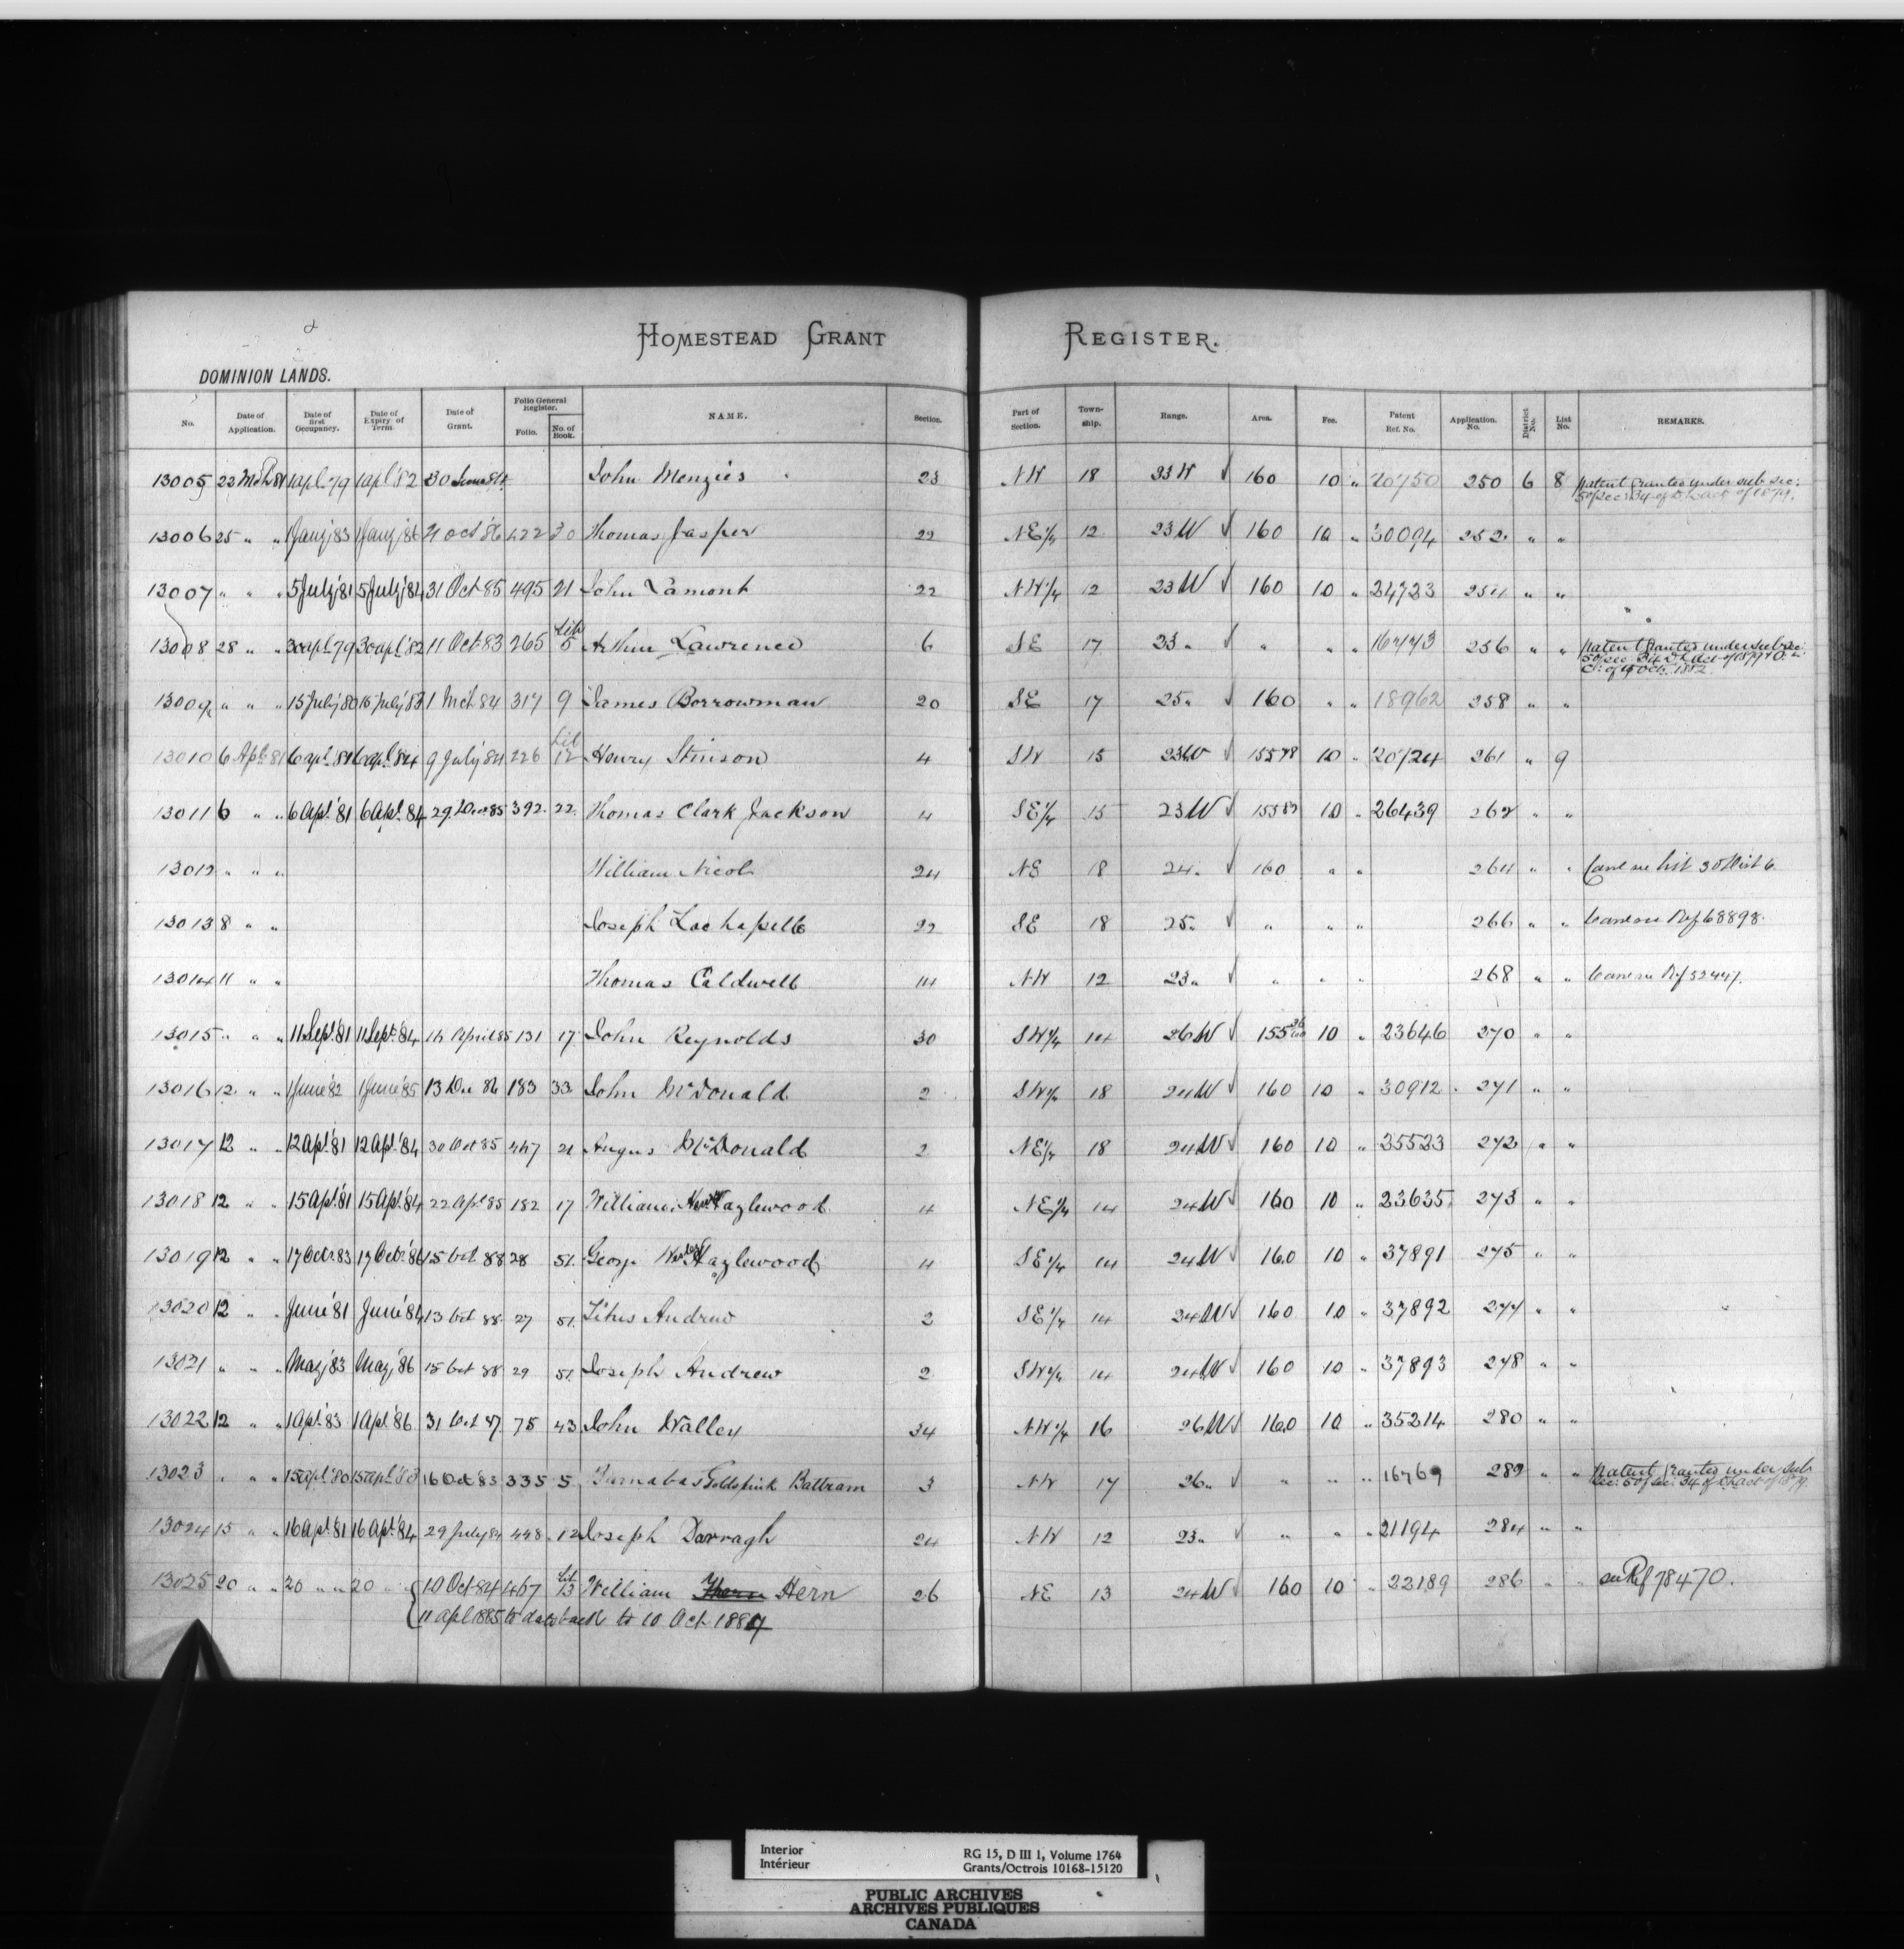 HOMESTEAD GRANT REGISTER.
DOMINION LANDS.
No. Date of Application. Date of first Occupancy. Date of Expiry of Term. Date of Grant. Folio General Register. Folio. No. of Book. NAME. Section. Part of Section. Town-ship. Range. Area. Fee. Patent Ref. No. Application. No. District No. List No. REMARKS.
13005 22 Mch 81 1 apl 79 1 apl '82 30 June 84 John Menzies 23 NW 18 23 W √ 160 10 " 20750 250 6 8 Patent Granted under sub sec: 5 of sec: 34 of D. L. act of 1879.
13006 25 " " 1 Jany '83 1 Jany '86 21 Oct '86 422 30 Thomas Jasper 22 NE 1/4 12 23 W √ 160 10 " 30094 252 " "
13007 " " " 5 July '81 5 July '84 31 Oct 85 495 21 John Lamont 22 NW 1/4 12 23 W √ 160 10 " 24723 254 " "
13008 28 " " 30 apl 79 30 apl '82 11 Oct 83 265 Lib 5 Arthur Lawrence 6 SE 17 23 " √ " " " 16743 256 " " Patent Granted under sub sec: 5 of sec: 34 D. L. Act of 1879 & O. in C. of 19 Oct. 1882.
13009 " " " 15 July '80 15 July '83 1 Mch 84 317 9 James Borrowman 20 SE 17 25 " √ 160 " " 18962 258 " "
13010 6 Apl. 81 6 apl. '81 6 apl. '84 9 July '84 226 Lib 12 Henry Stinson 4 SW 15 23 W √ 155 78 10 " 20724 261 " 9
13011 6 " " 6 Apl. '81 6 Apl. '84 29 Dec 85 392 22 Thomas Clark Jackson 4 SE 1/4 15 23 W √ 155 87 10 " 26439 262 " "
13012 " " " William Nicol 24 NE 18 24 " √ 160 " " 264 " " Canc see list 30 Dist 6
13013 8 " " Joseph Lachapelle 22 SE 18 25 " √ " " " 266 " " Canc see Ref 68898.
13014 11 " " Thomas Caldwell 14 NW 12 23 " √ " " " 268 " " Canc see Ref 52447.
13015 " " " 11 Sept. '81 11 Sept. '84 14 April 85 131 17 John Reynolds 30 SW 1/4 14 26 W √ 155 26/100 10 " 23646 270 " "
13016 12 " " 1 June '82 1 June '85 13 Dec 86 183 33 John McDonald 2 SW 1/4 18 24 W √ 160 10 " 30912 271 " "
13017 12 " " 12 Apl. '81 12 Apl. '84 30 Oct 85 447 21 Angus McDonald 2 NE 1/4 18 24 W √ 160 10 " 35523 272 " "
13018 12 " " 15 Apl. '81 15 Apl. '84 22 Apl 85 182 17 William Hazlewood 4 NE 1/4 14 24 W √ 160 10 " 23635 273 " "
13019 12 " " 17 Oct. 83 17 Oct. '86 15 Oct 88 28 51 George Wesley Hazlewood 4 SE 1/4 14 24 W √ 160 10 " 37891 275 " "
13020 12 " " June '81 June '84 13 Oct 88 27 51 Titus Andrew 2 SE 1/4 14 24 W √ 160 10 " 37892 277 " "
13021 " " " May '83 May '86 15 Oct 88 29 51 Joseph Andrew 2 SW 1/4 14 24 W √ 160 10 " 37893 278 " "
13022 12 " " 1 Apl. 83 1 Apl. '86 31 Oct 87 75 43 John Walley 34 NW 1/4 16 26 W √ 160 10 " 35214 280 " "
13023 " " " 15 apl '80 15 apl '83 16 Oct '83 335 5 Barnabas Goldspink Battram 3 NW 17 26 " √ " " " 16769 282 " " Patent Granted under sub sec: 5 of sec: 34 of D. L. act of 1879.
13024 15 " " 16 Apl. '81 16 Apl. '84 29 July 84 448 12 Joseph Darragh 24 NW 12 23 " √ " " " 21194 284 " "
13025 20 " " 20 " " 20 " 10 Oct 84 467 Lib 13 William Hern 26 NE 13 24 W √ 160 10 " 22189 286 " " see Ref 78470.
11 apl 1885 to date back to 10 Oct 1884
Interior RG 15, D III 1, Volume 1764
Intérieur Grants/Octrois 10168-15120
PUBLIC ARCHIVES
ARCHIVES PUBLIQUES
CANADA